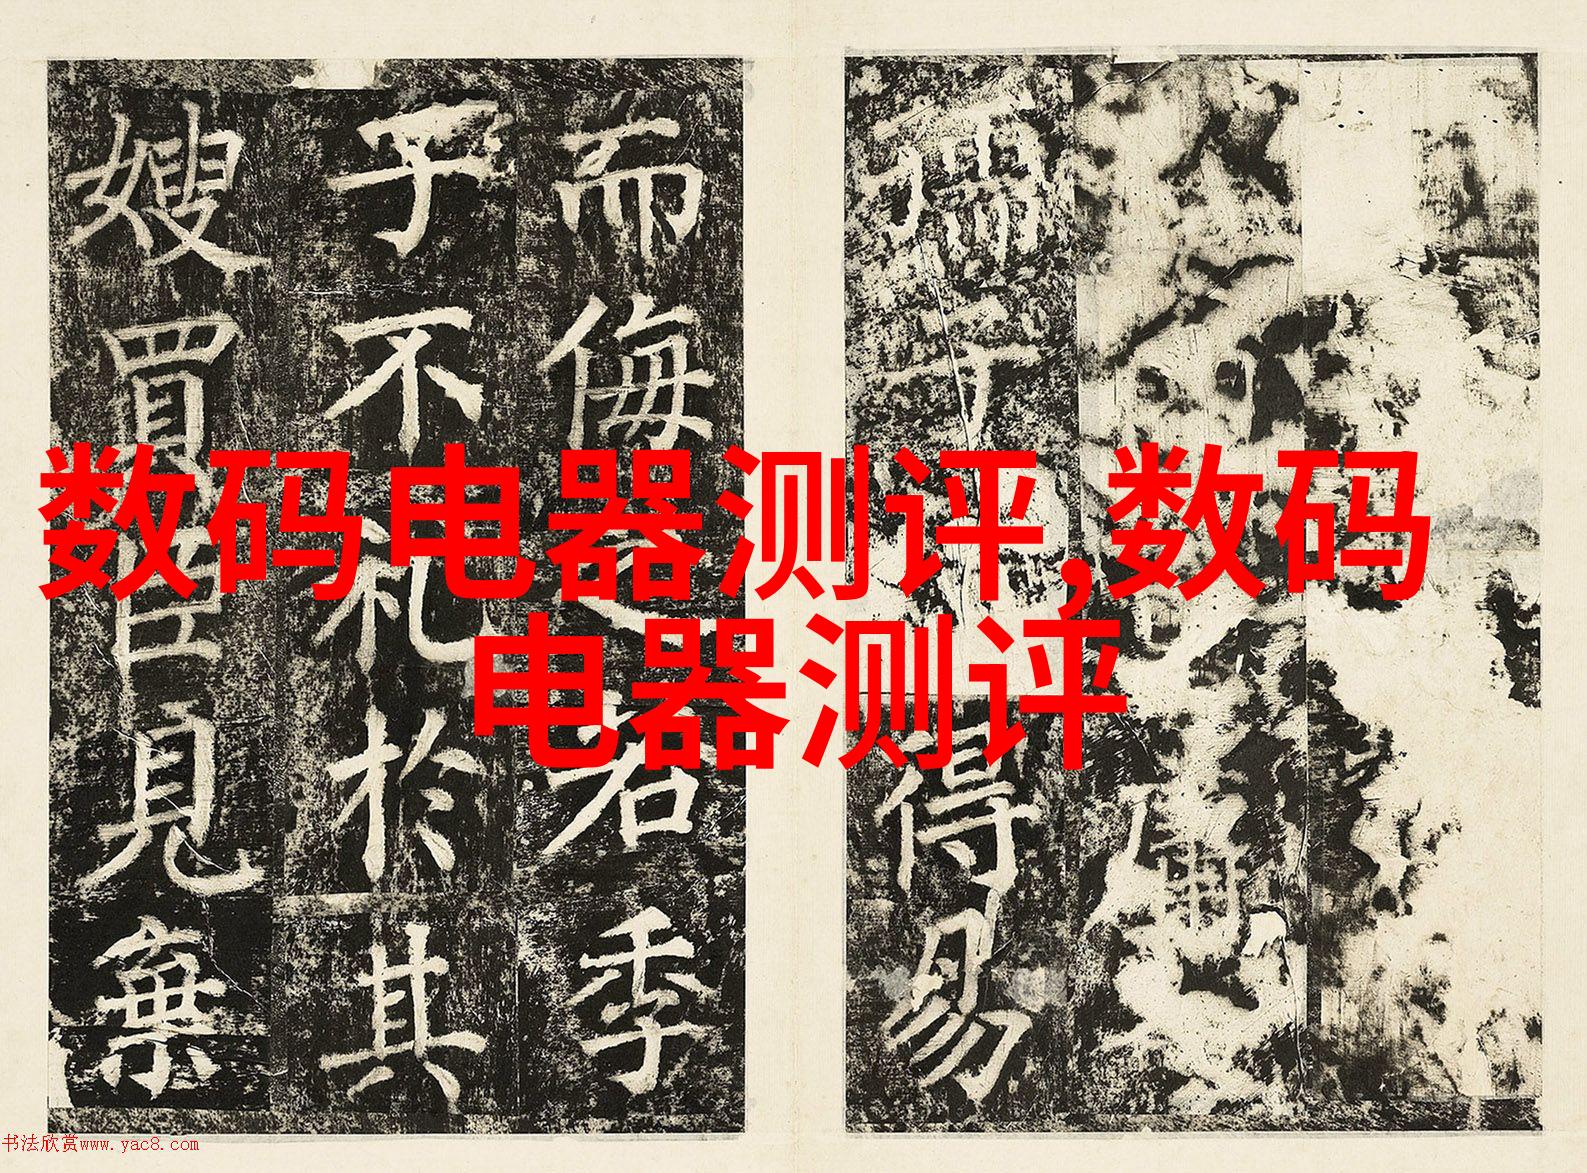 数码电器测评,数码
电器测评
孺子得易
而侮之若季
子不礼於其
嫂買臣見棄
书法欣赏www.yac8.com